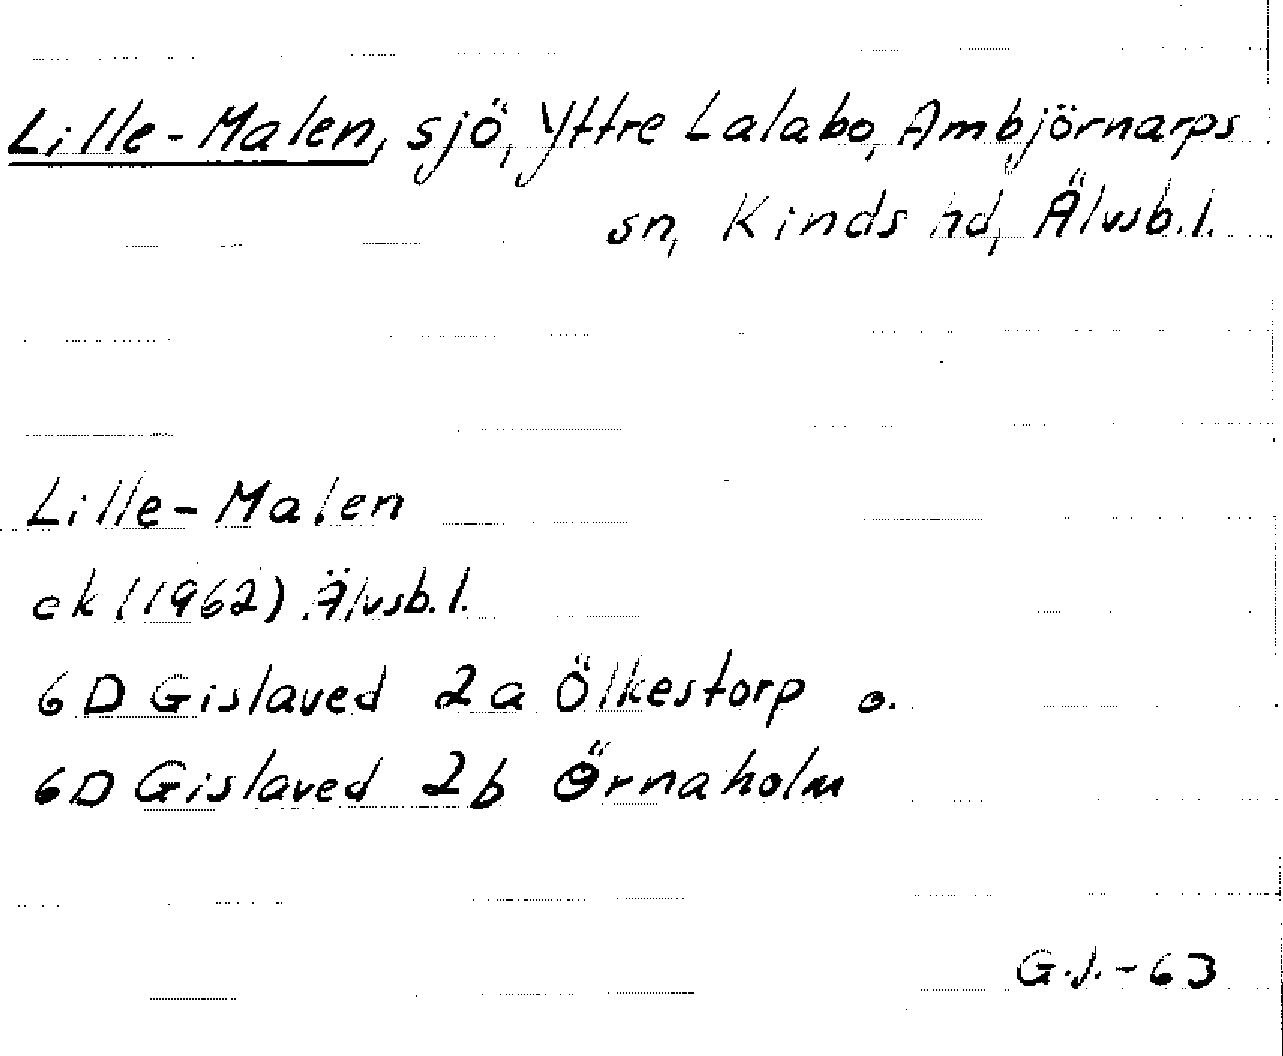 Lille-Malen, sjö, Yttre Lalabo, Ambjörnarps
sn, Kinds hd, Älvsb.l.
Lille-Malen
ek (1962) Älvsb.l.
6D Gislaved 2a Ölkestorp o.
6D Gislaved 2b Örnaholm
G.J.-63